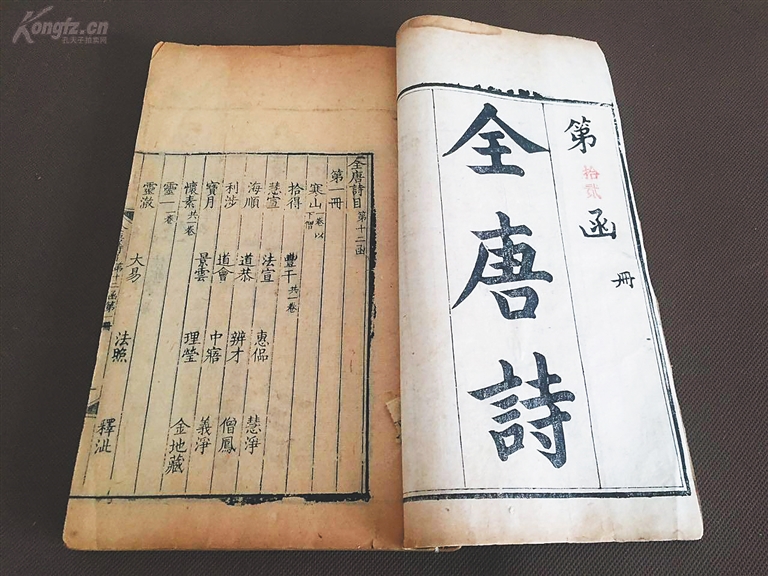 Kongfz.cn
孔夫子拍卖网
第拾貳函 冊
全唐詩
全唐詩目 第十二函
第一冊
寒山 一卷以下僧
拾得 豐干 共一卷
慧宣 法宣
海順 道恭 惠偘 慧淨
利涉 道會 辨才 僧鳳
寶月 景雲 中寤 義淨
懷素 共一卷 理瑩 金地藏
靈一 二卷
靈澈 大易 法照 釋泚